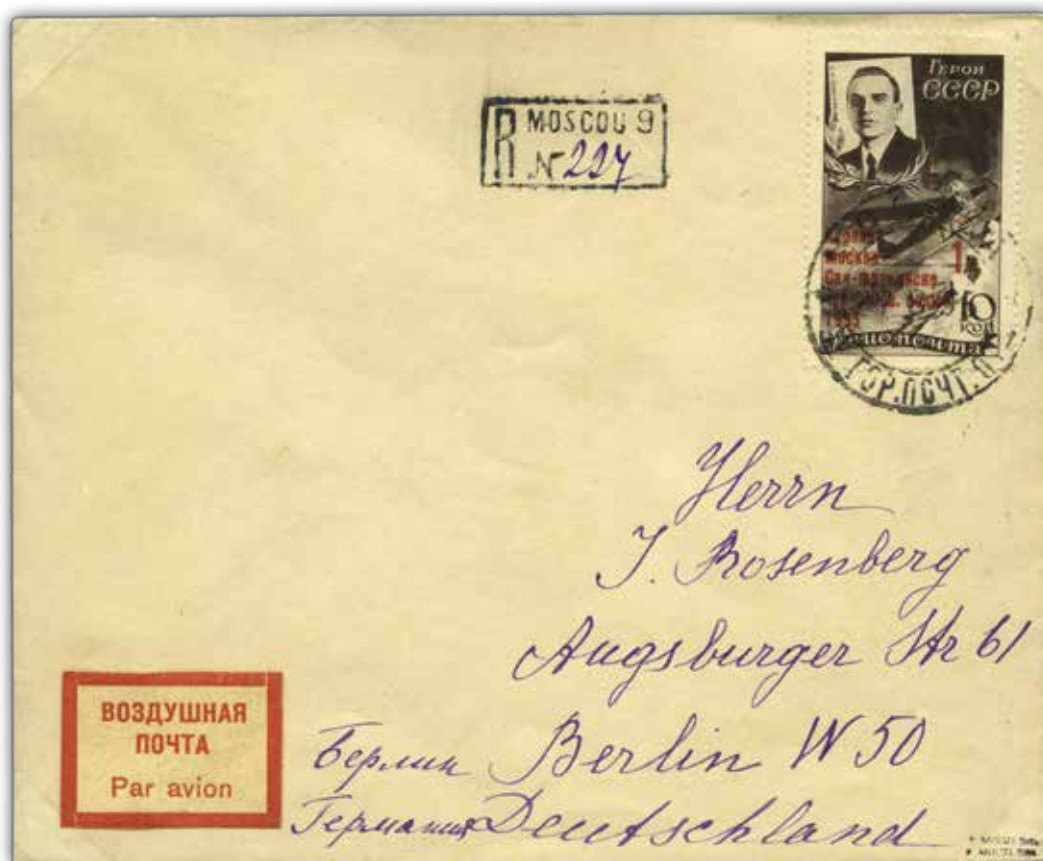 MOSCOU 9
R № 227
ГЕРОИ
СССР
Москва
Сан-Франциско
1935
1 р.
10
КОП
АВИОПОЧТА
ГОР.ПОЧТ.
Herrn
J. Rosenberg
Augsburger Str 61
Берлин Berlin W 50
Германия Deutschland
ВОЗДУШНАЯ
ПОЧТА
Par avion